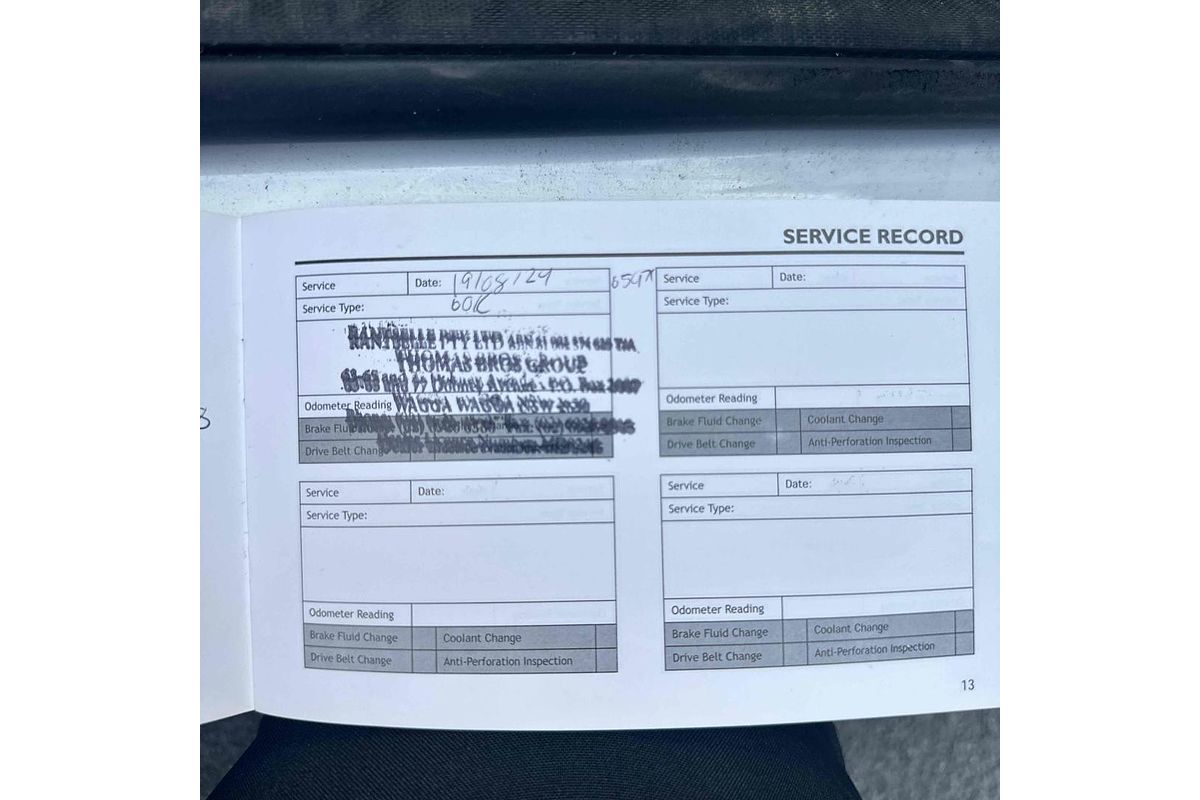 SERVICE RECORD
Service Date: 19/08/24
Service Type: 60K
RANTBELLE PTY LTD ABN
THOMAS BROS GROUP
63-65 and Avenue P.O. Box
Odometer Reading WAGGA WAGGA NSW
Brake Fluid
Drive Belt Change
Service Date:
Service Type:
Odometer Reading
Brake Fluid Change Coolant Change
Drive Belt Change Anti-Perforation Inspection
Service Date:
Service Type:
Odometer Reading
Brake Fluid Change Coolant Change
Drive Belt Change Anti-Perforation Inspection
Service Date:
Service Type:
Odometer Reading
Brake Fluid Change Coolant Change
Drive Belt Change Anti-Perforation Inspection
13